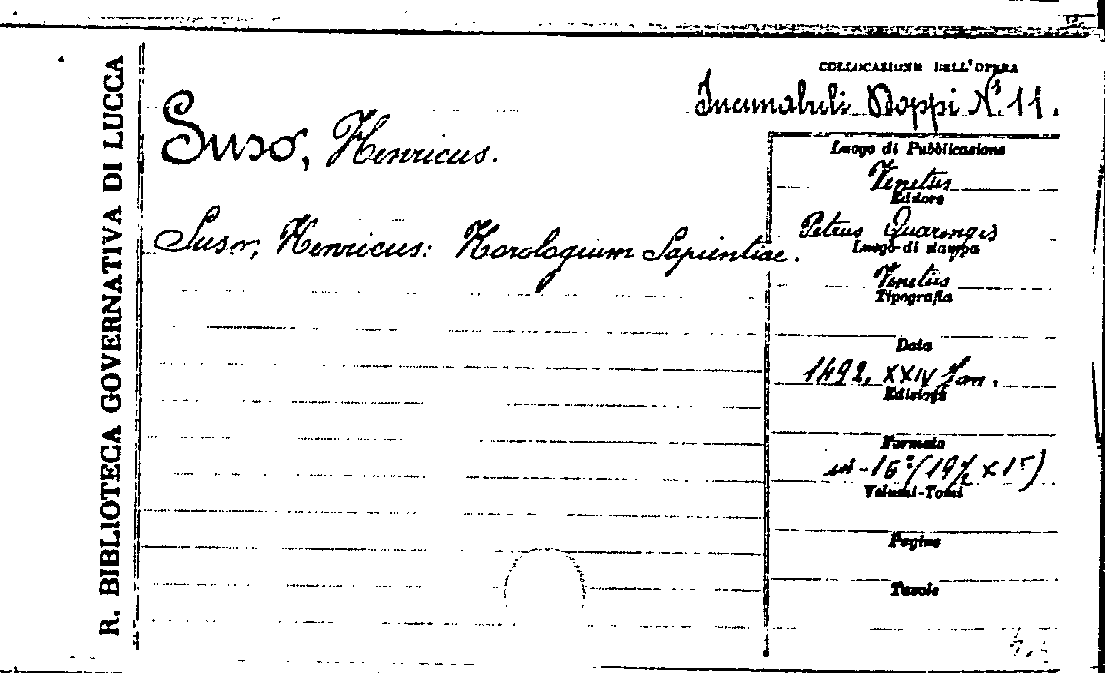 R. BIBLIOTECA GOVERNATIVA DI LUCCA
COLLOCAZIONE DELL'OPERA
Incunabuli Doppi N.º 11.
Suso, Henricus.
Suso, Henricus: Horologium Sapientiae.
Luogo di Pubblicazione
Venetus
Editore
Petrus Quarengis
Luogo di stampa
Venetus
Tipografia
Data
1492, XXIV Jan.
Edizione
Formato
in-16º (19½ x 15)
Volumi-Tomi
Pagine
Tavole